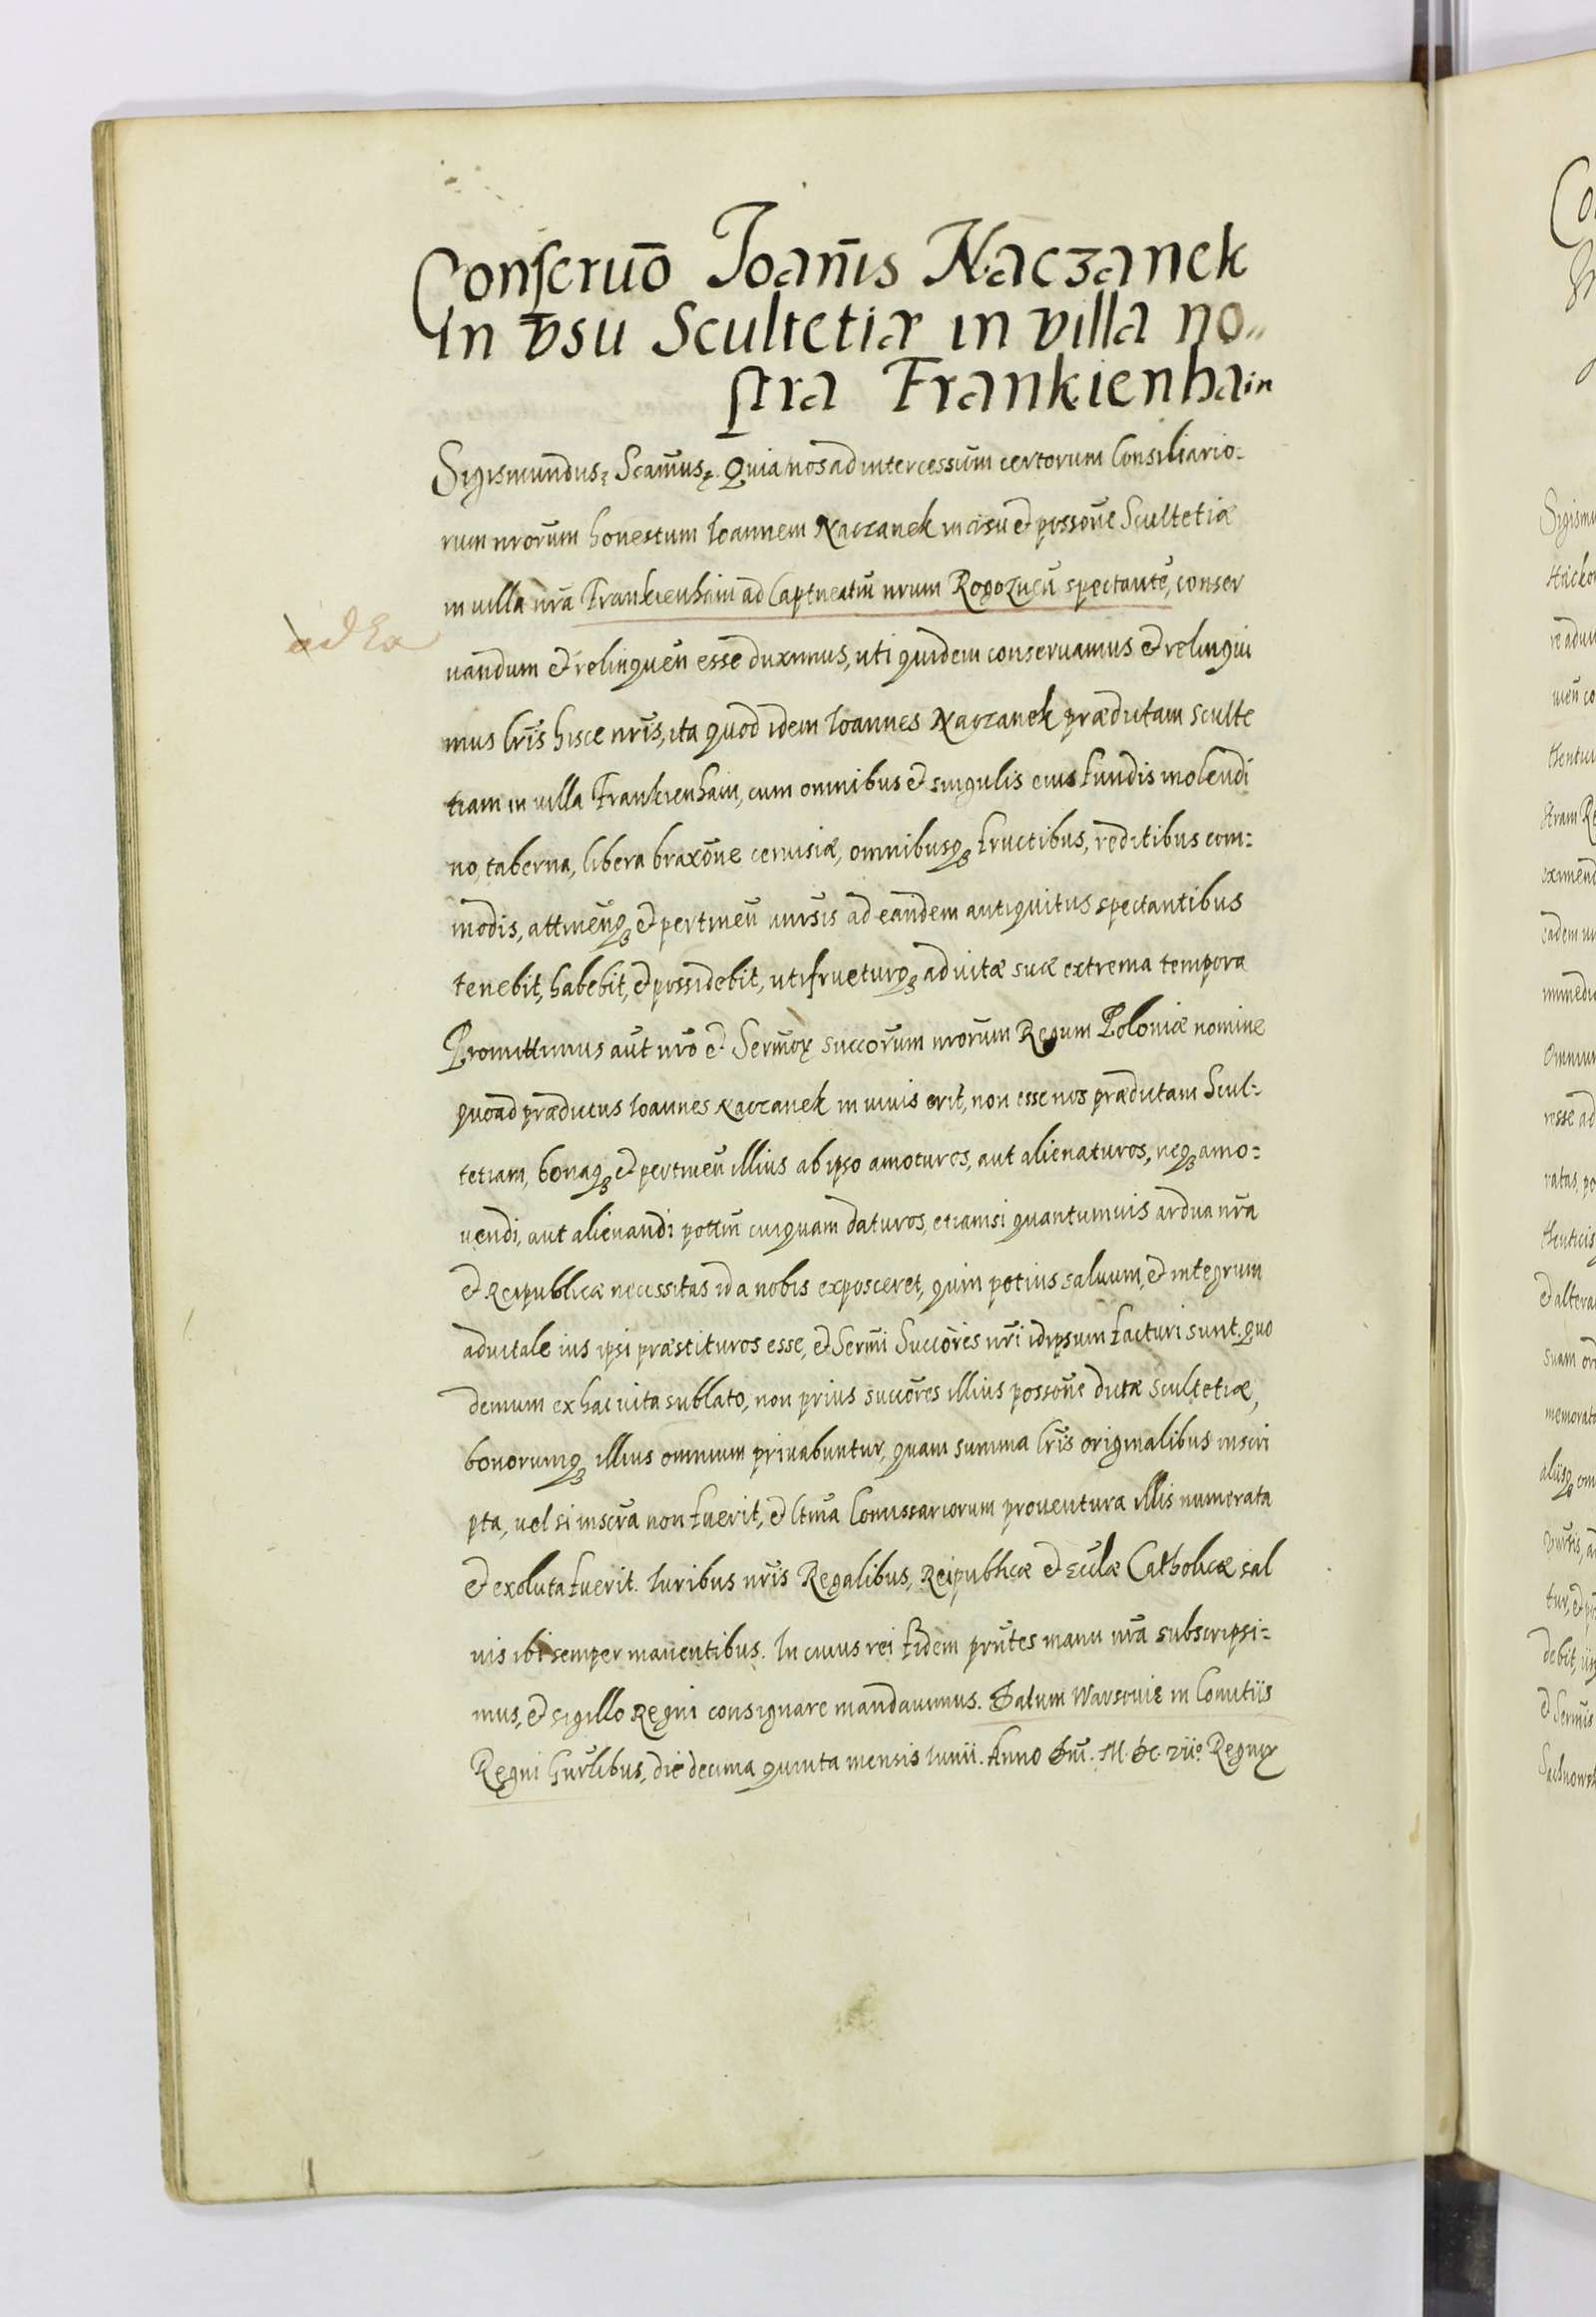 Conseruō Ioan̄is Naczanek
In vsu Scultetiæ in villa no=
stra Frankienhain
Sigismundus ꝛ Sc̄amus ꝛ. Quia nos ad intercessiōm certorum Consiliario=
rum nrōrum honestum Ioannem Naczanek in usu et possōne Scultetiæ
in villa nr̄a Frankienhain ad Captneatū nrum Rogoznēn̄ spectante, conser
uandum et relinquen̄ esse duximus, uti quidem conseruamus et relinqui
ad Ea
mus lr̄is hisce nr̄is, ita quod idem Ioannes Naczanek prædictam Sculte
tiam in villa Frankienhain, cum omnibus et singulis eius fundis molendi
no, taberna, libera braxōne ceruisiæ, omnibusq₃ fructibus, reditibus com=
modis, attinen̄q₃ et pertinen̄ uiursis ad eandem antiquitus spectantibus
tenebit, habebit, et possidebit, utifrueturq₃ ad vitæ suæ extrema tempora
Promittimus aut̄ nr̄o et Serm̄oꝝ succōrum nrōrum Regum Poloniæ nomine
quoad prædictus Ioannes Naczanek in viuis erit, non esse nos prædictam Scul=
tetiam, bonaq₃ et pertinen̄ illius ab ipso amoturos, aut alienaturos, neq₃ amo=
uendi, aut alienandi pottm̄ cuiquam daturos, etiamsi quantumuis ardua nr̄a
et Reipublicæ necessitas id a nobis exposceret, quin potius saluum, et integrum
aduitale ius ipsi præstituros esse, et Serm̄i Succōres nr̄i idipsum facturi sunt. quo
demum ex hac uita sublato, non prius succōres illius possōne dictæ scultetiæ,
bonorumq₃ illius omnium priuabuntur, quam summa lr̄is originalibus inscri
pta, vel si inscr̄a non fuerit, et ltm̄a Comissariorum prouentura illis numerata
et exoluta fuerit. Iuribus nr̄is Regalibus, Reipublicæ et Eccl̄æ Catholicæ sal
uis ibi semper manentibus. In cuius rei fidem prn̄tes manu nr̄a subscripsi=
mus, et sigillo Regni consignare mandauimus. Datum Warsouiæ in Comitiis
Regni Gnrl̄ibus, die decima quinta mensis Iunii. Anno Dnī. M. DC. VIIº Regnoꝝ